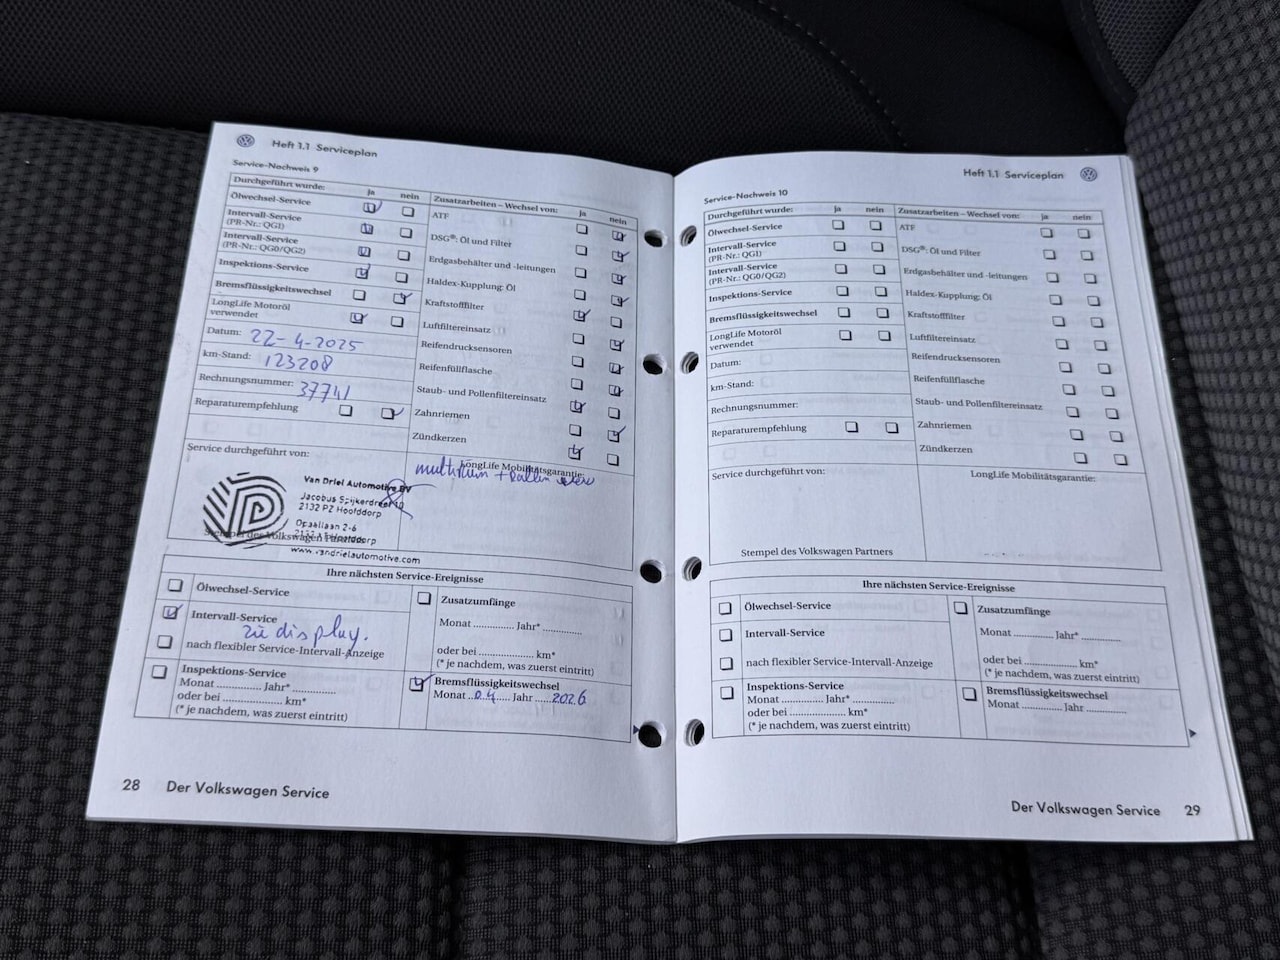 Heft 1.1 Serviceplan
Service-Nachweis 9
Durchgeführt wurde: ja nein
Ölwechsel-Service
Intervall-Service
(PR-Nr.: QG1)
Intervall-Service
(PR-Nr.: QG0/QG2)
Inspektions-Service
Bremsflüssigkeitswechsel
LongLife Motoröl
verwendet
Datum: 22-4-2025
km-Stand: 123208
Rechnungsnummer: 37741
Reparaturempfehlung
Zusatzarbeiten – Wechsel von: ja nein
ATF
DSG®: Öl und Filter
Erdgasbehälter und -leitungen
Haldex-Kupplung: Öl
Kraftstofffilter
Luftfiltereinsatz
Reifendrucksensoren
Reifenfüllflasche
Staub- und Pollenfiltereinsatz
Zahnriemen
Zündkerzen
Service durchgeführt von:
LongLife Mobilitätsgarantie:
Van Driel Automotive BV
Jacobus Spijkerdreef 10
2132 PZ Hoofddorp
Opaallaan 2-6
Hoofddorp
www.vandrielautomotive.com
Stempel des Volkswagen Partners
Ihre nächsten Service-Ereignisse
Ölwechsel-Service
Intervall-Service
zie display.
nach flexibler Service-Intervall-Anzeige
Inspektions-Service
Monat .............. Jahr* ...............
oder bei ...................... km*
(* je nachdem, was zuerst eintritt)
Zusatzumfänge
Monat .............. Jahr* ..............
oder bei ...................... km*
(* je nachdem, was zuerst eintritt)
Bremsflüssigkeitswechsel
Monat ..04.... Jahr ....2026
28 Der Volkswagen Service
Heft 1.1 Serviceplan
Service-Nachweis 10
Durchgeführt wurde: ja nein
Ölwechsel-Service
Intervall-Service
(PR-Nr.: QG1)
Intervall-Service
(PR-Nr.: QG0/QG2)
Inspektions-Service
Bremsflüssigkeitswechsel
LongLife Motoröl
verwendet
Datum:
km-Stand:
Rechnungsnummer:
Reparaturempfehlung
Zusatzarbeiten – Wechsel von: ja nein
ATF
DSG®: Öl und Filter
Erdgasbehälter und -leitungen
Haldex-Kupplung: Öl
Kraftstofffilter
Luftfiltereinsatz
Reifendrucksensoren
Reifenfüllflasche
Staub- und Pollenfiltereinsatz
Zahnriemen
Zündkerzen
Service durchgeführt von:
LongLife Mobilitätsgarantie:
Stempel des Volkswagen Partners
Ihre nächsten Service-Ereignisse
Ölwechsel-Service
Intervall-Service
nach flexibler Service-Intervall-Anzeige
Inspektions-Service
Monat .............. Jahr* ...............
oder bei ...................... km*
(* je nachdem, was zuerst eintritt)
Zusatzumfänge
Monat .............. Jahr* ..............
oder bei ...................... km*
(* je nachdem, was zuerst eintritt)
Bremsflüssigkeitswechsel
Monat .............. Jahr ...............
Der Volkswagen Service 29